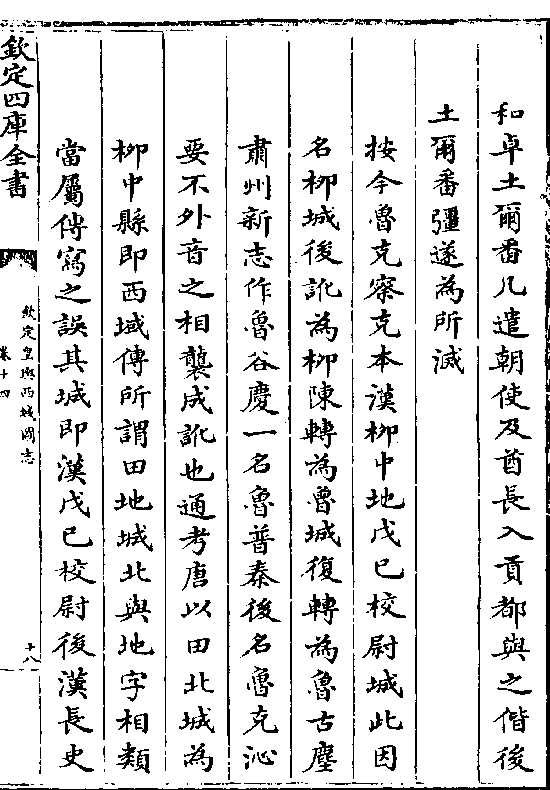 和卓土爾番凡遣朝使及酋長入貢都與之偕後
土爾番彊遂為所滅
按今魯克察克本漢柳中地戊已校尉城此因
名柳城後訛為柳陳轉為魯城復轉為魯古塵
肅州新志作魯谷慶一名魯普秦後名魯克沁
要不外音之相襲成訛也通考唐以田北城為
柳中縣即西域傳所謂田地城北與地字相類
當屬傳寫之誤其城即漢戊已校尉後漢長史
欽定四庫全書
欽定皇輿西域圖志
卷十四
十八